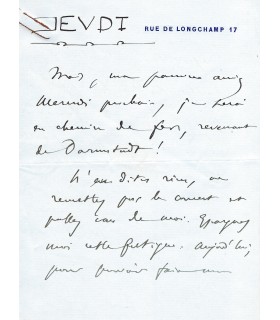 JEUDI
RUE DE LONGCHAMP 17
Mais, ma pauvre amie
Mercredi prochain, je serai
en chemin de fer, revenant
de Darmstadt!
N'en dites rien, ne
remettez pas le concert et
passez vous de moi. Epargnez
moi cette fatigue. Aujourd'hui,
pour pouvoir